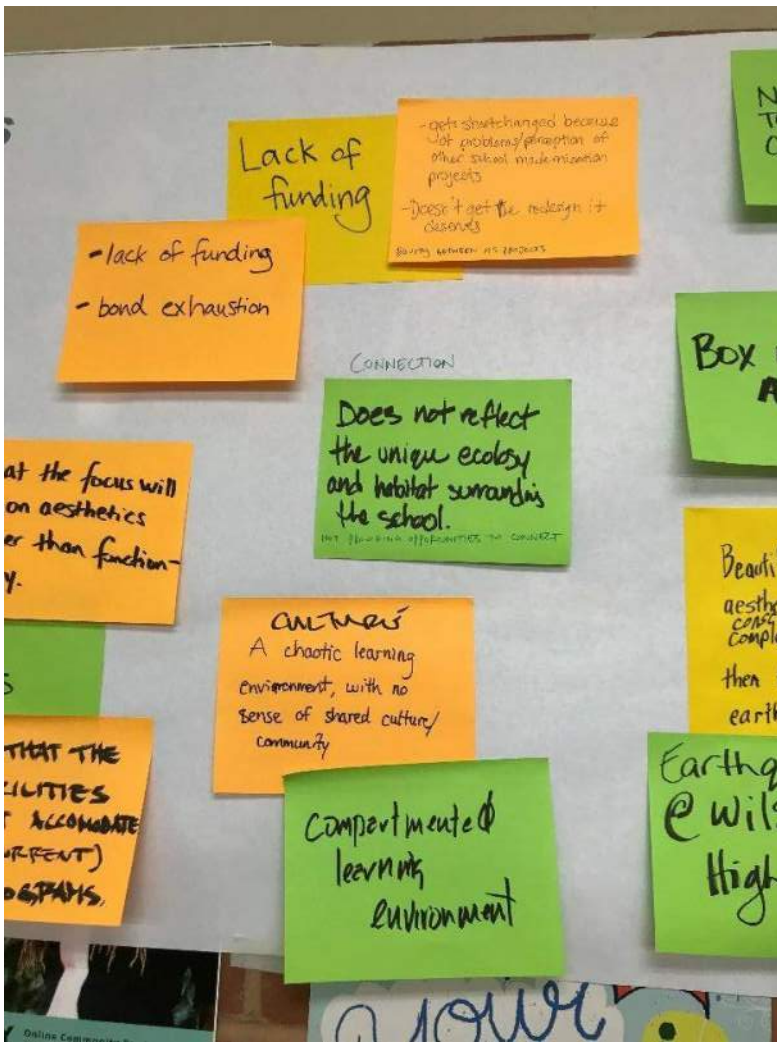 Lack of
funding
- gets shortchanged because
of problems/perception of
other school modernization
projects
- Doesn't get the redesign it
deserves
EQUITY BETWEEN HS PROJECTS
- lack of funding
- bond exhaustion
CONNECTION
Does not reflect
the unique ecology
and habitat surrounding
the school.
NOT PROVIDING OPPORTUNITIES TO CONNECT
at the focus will
on aesthetics
er than function-
y.
CULTURE
A chaotic learning
environment, with no
sense of shared culture/
community
S
THAT THE
ILITIES
T ACCOMODATE
URRENT)
OGRAMS.
Compartmented
learning
environment
N
T
C
BOX
A
Beauti
aesthe
cons
comple
then
earth
Earthq
@ Wils
High
Online Community
your